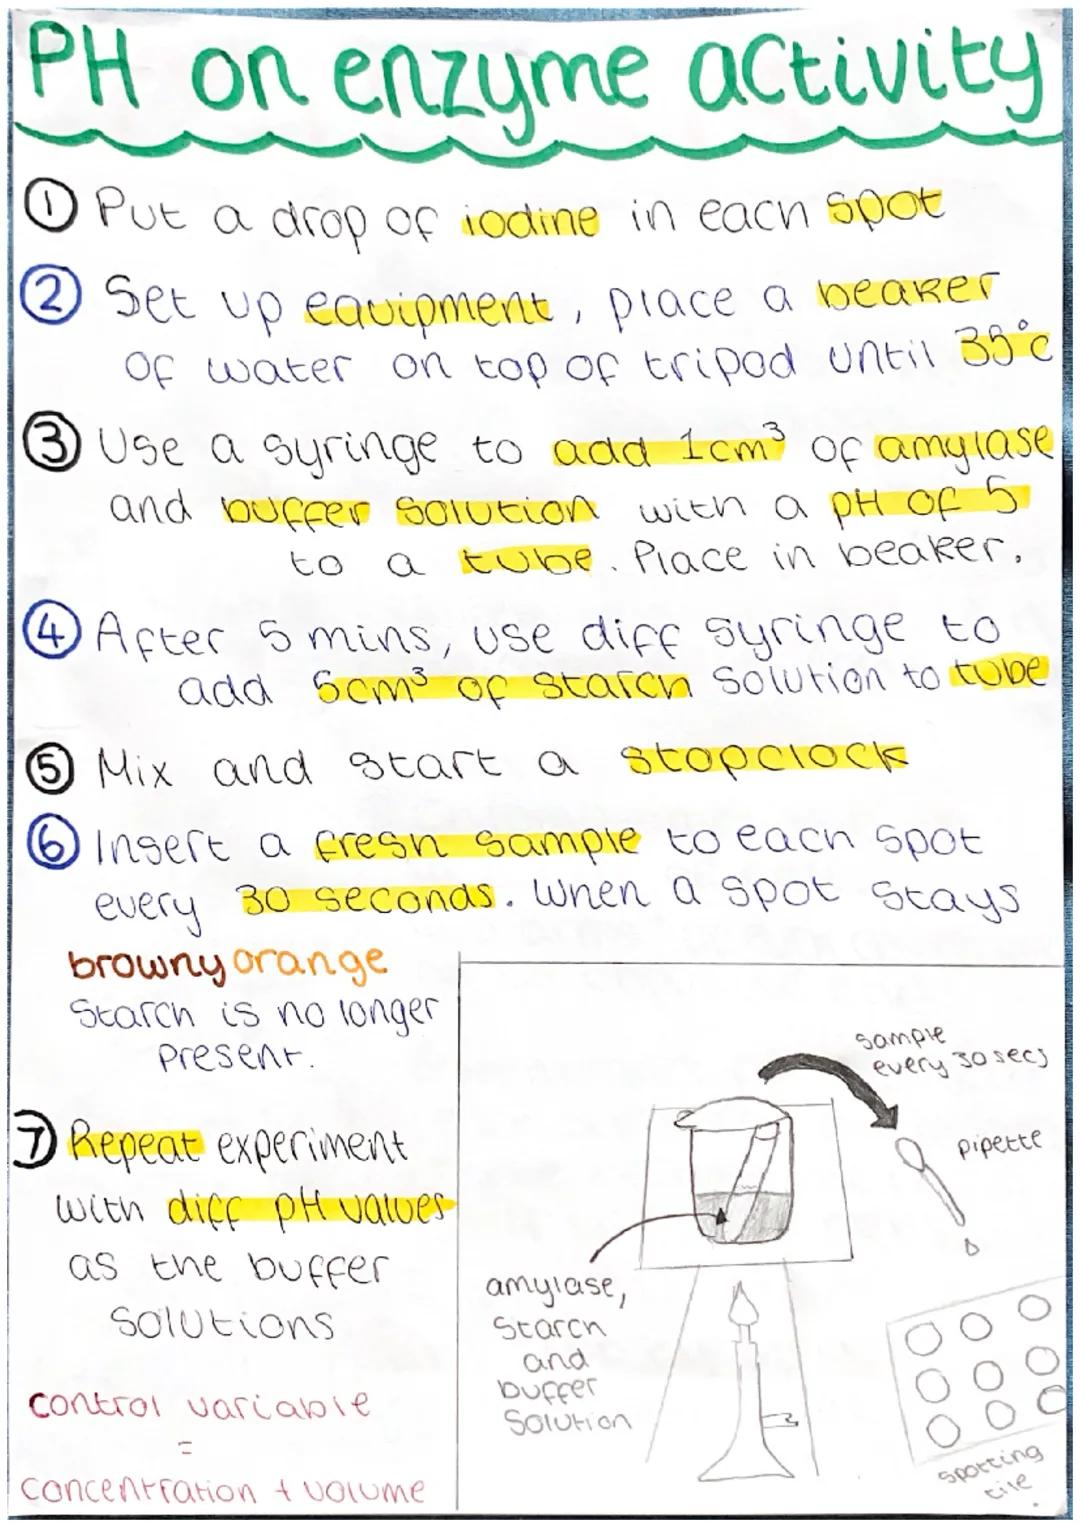 PH on enzyme activity
① Put a drop of iodine in each spot
② Set up equipment, place a beaker
of water on top of tripod until 35°c
③ Use a syringe to add 1cm³ of amylase
and buffer solution with a pH of 5
to a tube. Place in beaker.
④ After 5 mins, use diff syringe to
add 5cm³ of starch solution to tube
⑤ Mix and start a stopclock
⑥ Insert a fresh sample to each spot
every 30 seconds. When a spot stays
browny orange
Starch is no longer
present.
⑦ Repeat experiment
with diff pH values
as the buffer
solutions
control variable
=
concentration + volume
sample
every 30 secs
pipette
amylase,
starch
and
buffer
solution
spotting
tile.